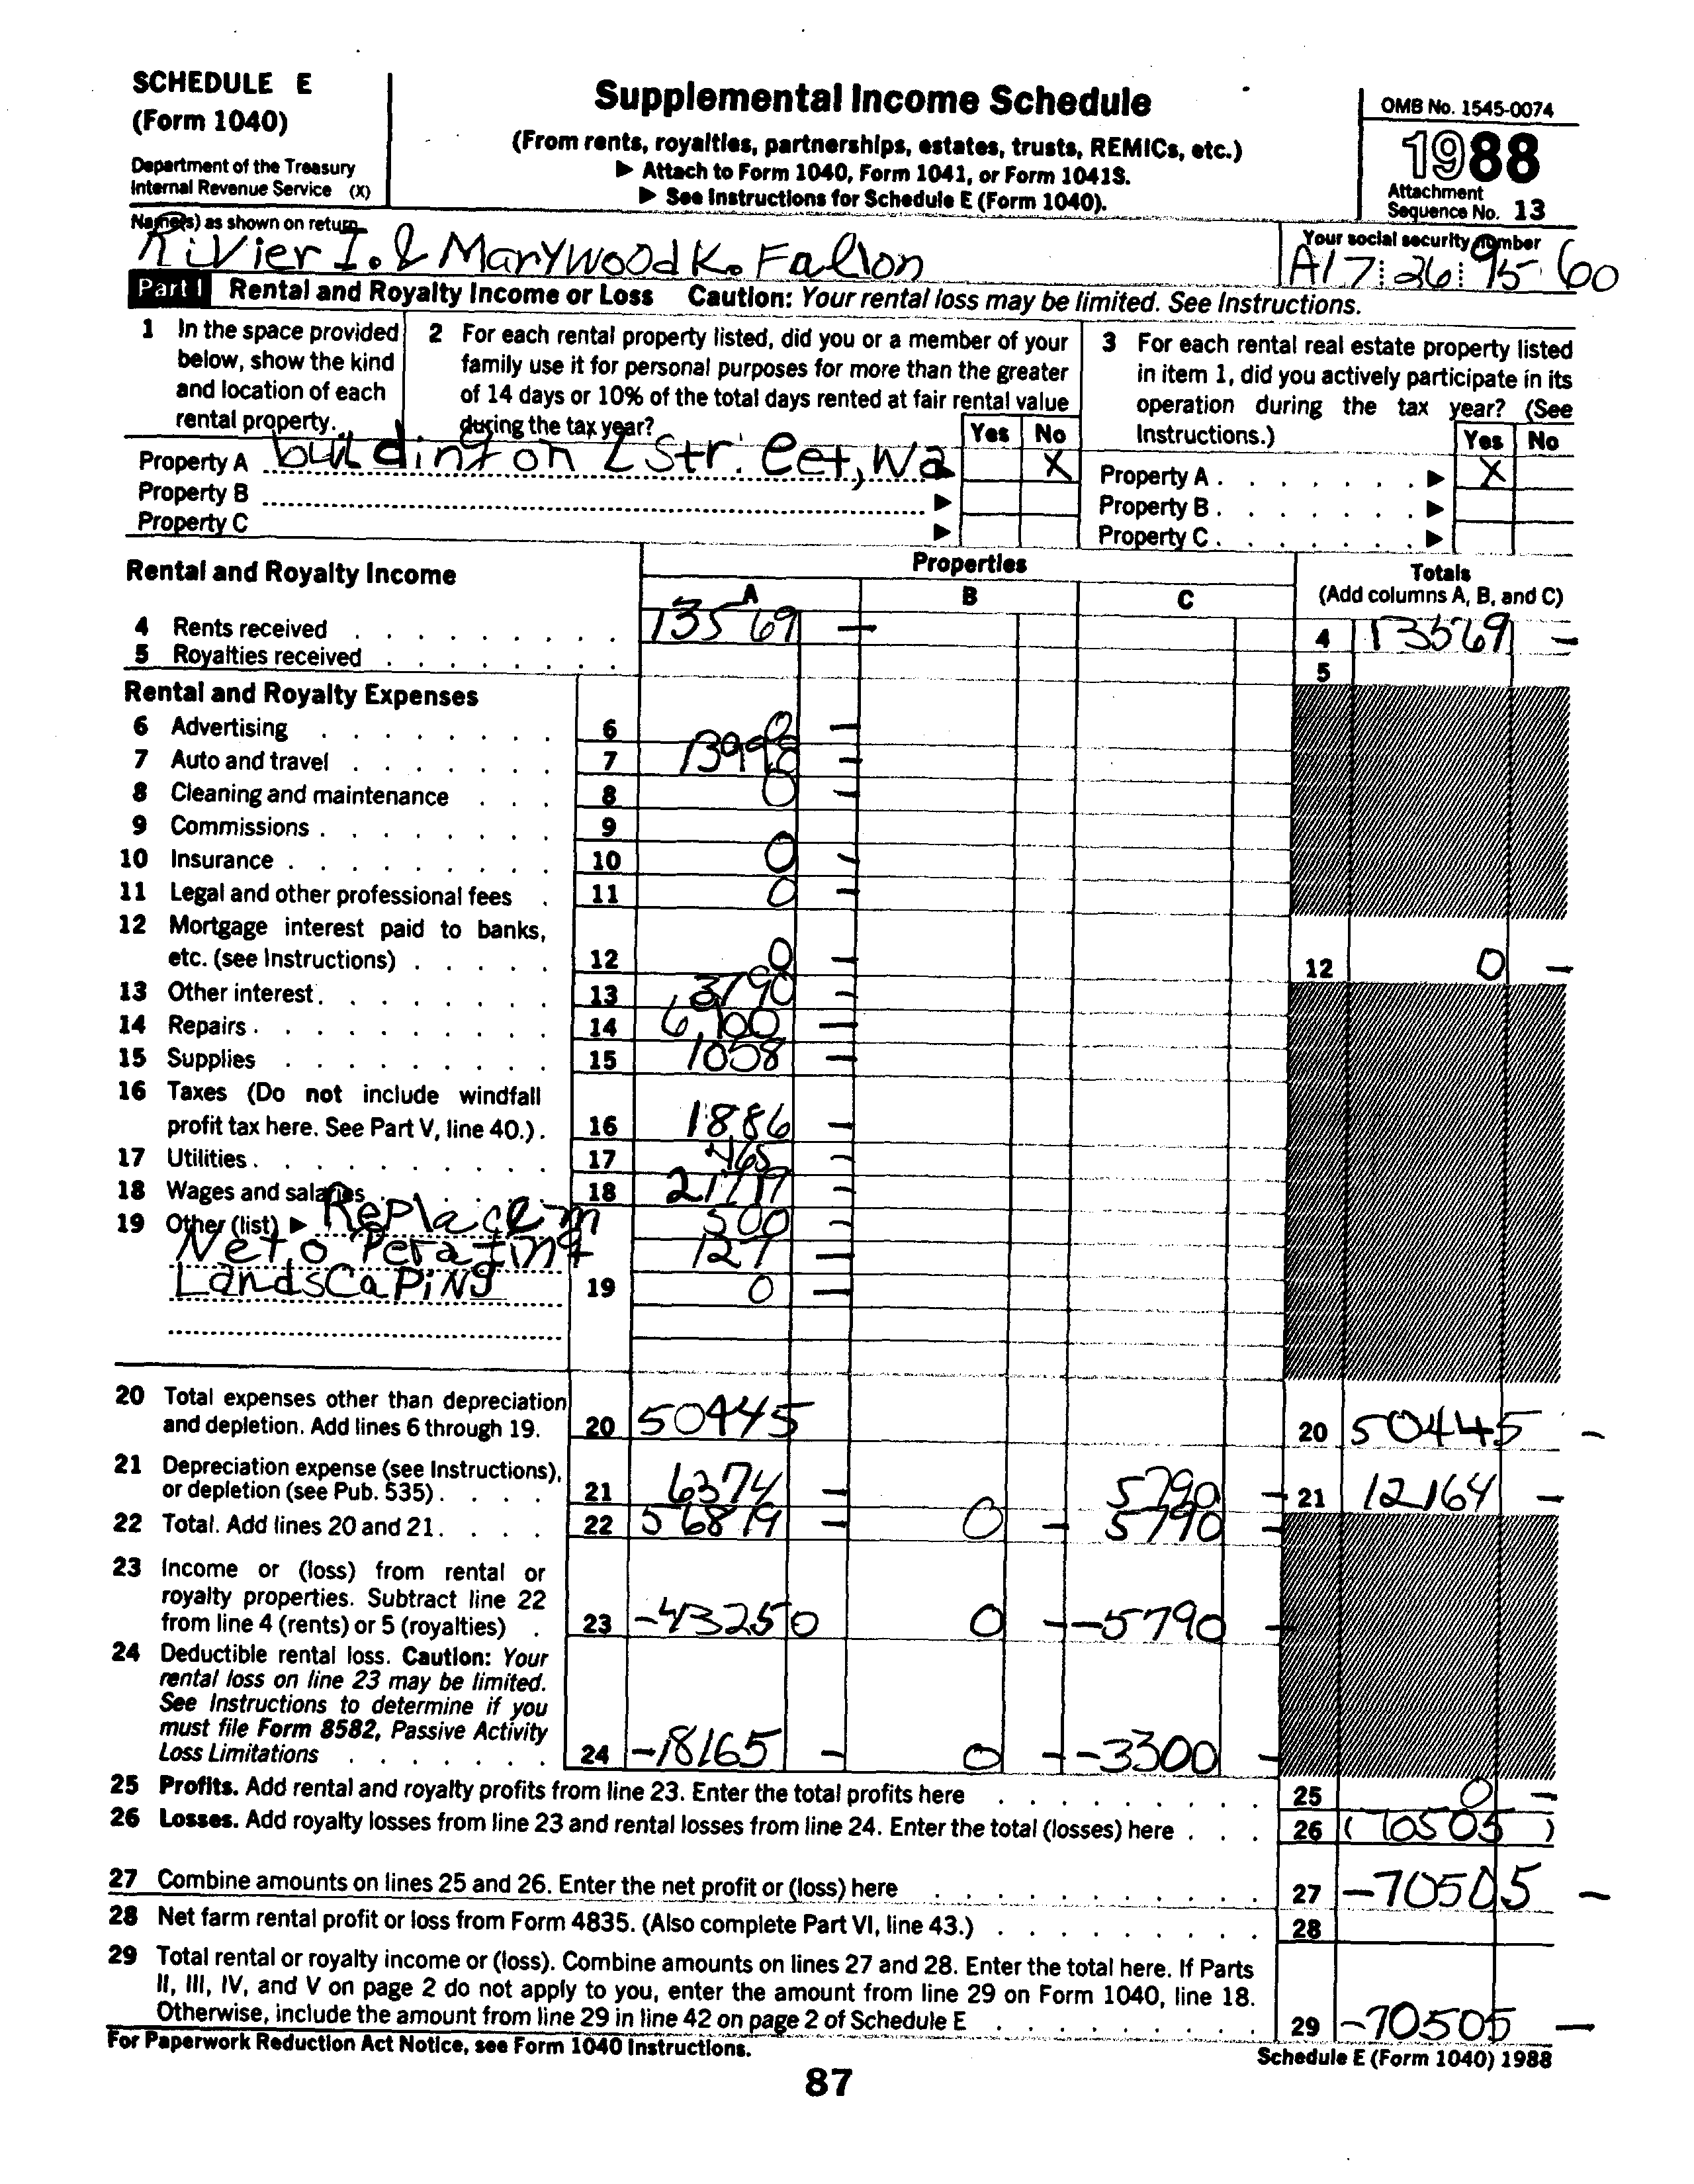 SCHEDULE E
(Form 1040)
Department of the Treasury
Internal Revenue Service (X)
Supplemental Income Schedule
(From rents, royalties, partnerships, estates, trusts, REMICs, etc.)
▶ Attach to Form 1040, Form 1041, or Form 1041S.
▶ See Instructions for Schedule E (Form 1040).
OMB No. 1545-0074
1988
Attachment
Sequence No. 13
Name(s) as shown on return
Rivier I. & Marywood K. Fallon
Your social security number
A17 26 95 60
Part I Rental and Royalty Income or Loss Caution: Your rental loss may be limited. See Instructions.
1 In the space provided
below, show the kind
and location of each
rental property.
2 For each rental property listed, did you or a member of your
family use it for personal purposes for more than the greater
of 14 days or 10% of the total days rented at fair rental value
during the tax year?
Yes No
3 For each rental real estate property listed
in item 1, did you actively participate in its
operation during the tax year? (See
Instructions.)
Yes No
Property A building on L Str. eet, Wa ▶ X
Property B ▶
Property C ▶
Property A ▶ X
Property B ▶
Property C ▶
Rental and Royalty Income
Properties
A B C
Totals
(Add columns A, B, and C)
4 Rents received 13569 — 4 13569 —
5 Royalties received 5
Rental and Royalty Expenses
6 Advertising 6 0 —
7 Auto and travel 7 —
8 Cleaning and maintenance 8 0 —
9 Commissions 9
10 Insurance 10 0 —
11 Legal and other professional fees 11 0 —
12 Mortgage interest paid to banks,
etc. (see Instructions) 12 0 — 12 0 —
13 Other interest 13 3790 —
14 Repairs 14 6100 —
15 Supplies 15 1058 —
16 Taxes (Do not include windfall
profit tax here. See Part V, line 40.) 16 1886 —
17 Utilities 17 465 —
18 Wages and salaries 18 —
19 Other (list) ▶ Replacem 500 —
Net operating 127 —
Landscaping 19 0 —
20 Total expenses other than depreciation
and depletion. Add lines 6 through 19. 20 50445 20 50445 —
21 Depreciation expense (see Instructions),
or depletion (see Pub. 535) 21 6374 — 5790 — 21 12164 —
22 Total. Add lines 20 and 21 22 56819 — 0 — 5790 —
23 Income or (loss) from rental or
royalty properties. Subtract line 22
from line 4 (rents) or 5 (royalties) 23 -43250 0 — -5790 —
24 Deductible rental loss. Caution: Your
rental loss on line 23 may be limited.
See Instructions to determine if you
must file Form 8582, Passive Activity
Loss Limitations 24 -18165 — 0 — -3300 —
25 Profits. Add rental and royalty profits from line 23. Enter the total profits here 25 0 —
26 Losses. Add royalty losses from line 23 and rental losses from line 24. Enter the total (losses) here 26 ( 70505 )
27 Combine amounts on lines 25 and 26. Enter the net profit or (loss) here 27 -70505 —
28 Net farm rental profit or loss from Form 4835. (Also complete Part VI, line 43.) 28
29 Total rental or royalty income or (loss). Combine amounts on lines 27 and 28. Enter the total here. If Parts
II, III, IV, and V on page 2 do not apply to you, enter the amount from line 29 on Form 1040, line 18.
Otherwise, include the amount from line 29 in line 42 on page 2 of Schedule E 29 -70505 —
For Paperwork Reduction Act Notice, see Form 1040 Instructions.
Schedule E (Form 1040) 1988
87